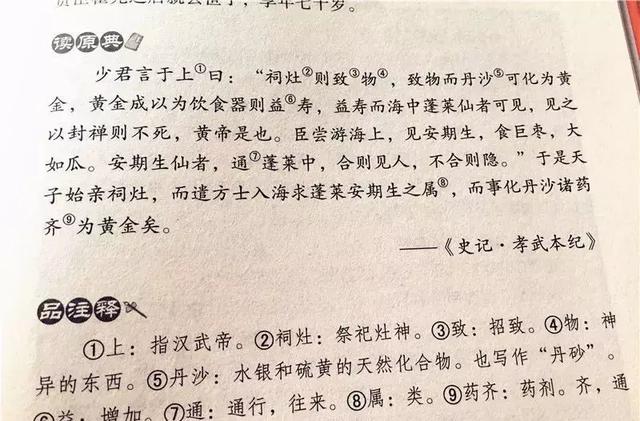 之后就去世了，享年七十岁。
读原典
少君言于上①曰：“祠灶②则致③物④，致物而丹沙⑤可化为黄
金，黄金成以为饮食器则益⑥寿，益寿而海中蓬莱仙者可见，见之
以封禅则不死，黄帝是也。臣尝游海上，见安期生，食巨枣，大
如瓜。安期生仙者，通⑦蓬莱中，合则见人，不合则隐。”于是天
子始亲祠灶，而遣方士入海求蓬莱安期生之属⑧，而事化丹沙诸药
齐⑨为黄金矣。
——《史记·孝武本纪》
品注释
①上：指汉武帝。②祠灶：祭祀灶神。③致：招致。④物：神
异的东西。⑤丹沙：水银和硫黄的天然化合物。也写作“丹砂”。
⑥益：增加。⑦通：通行，往来。⑧属：类。⑨药齐：药剂。齐，通